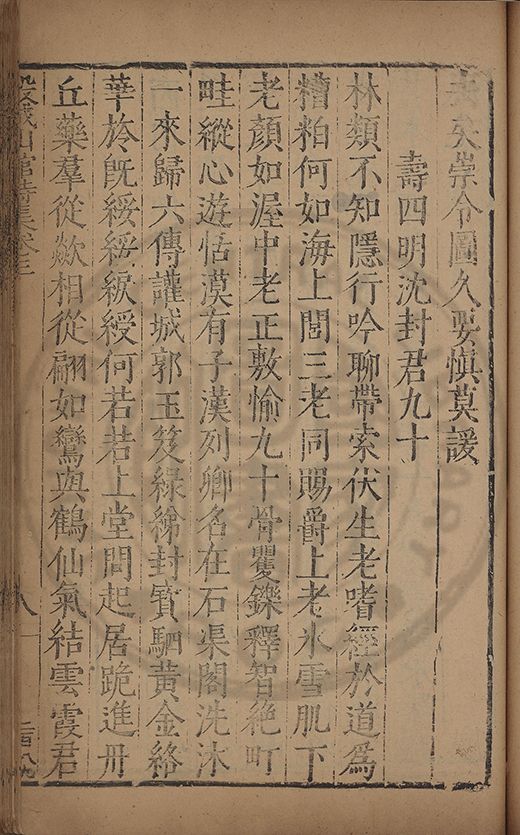 矣崇令圖久要慎莫諼
壽四明沈封君九十
林類不知隱行吟聊帶索伏生老嗜經於道爲
糟粕何如海上閭三老同賜爵上老氷雪肌下
老顏如渥中老正敷愉九十骨矍鑠釋智絶町
畦縱心遊恬漠有子漢列卿名在石渠閣洗沐
一來歸六傳讙城郭玉笈綠綈封寳駟黃金絡
華於旣綏綏綬何若若上堂問起居跪進丹
丘藥羣從欻相從翩如鸞與鶴仙氣結雲霞君
山館詩集卷三
八